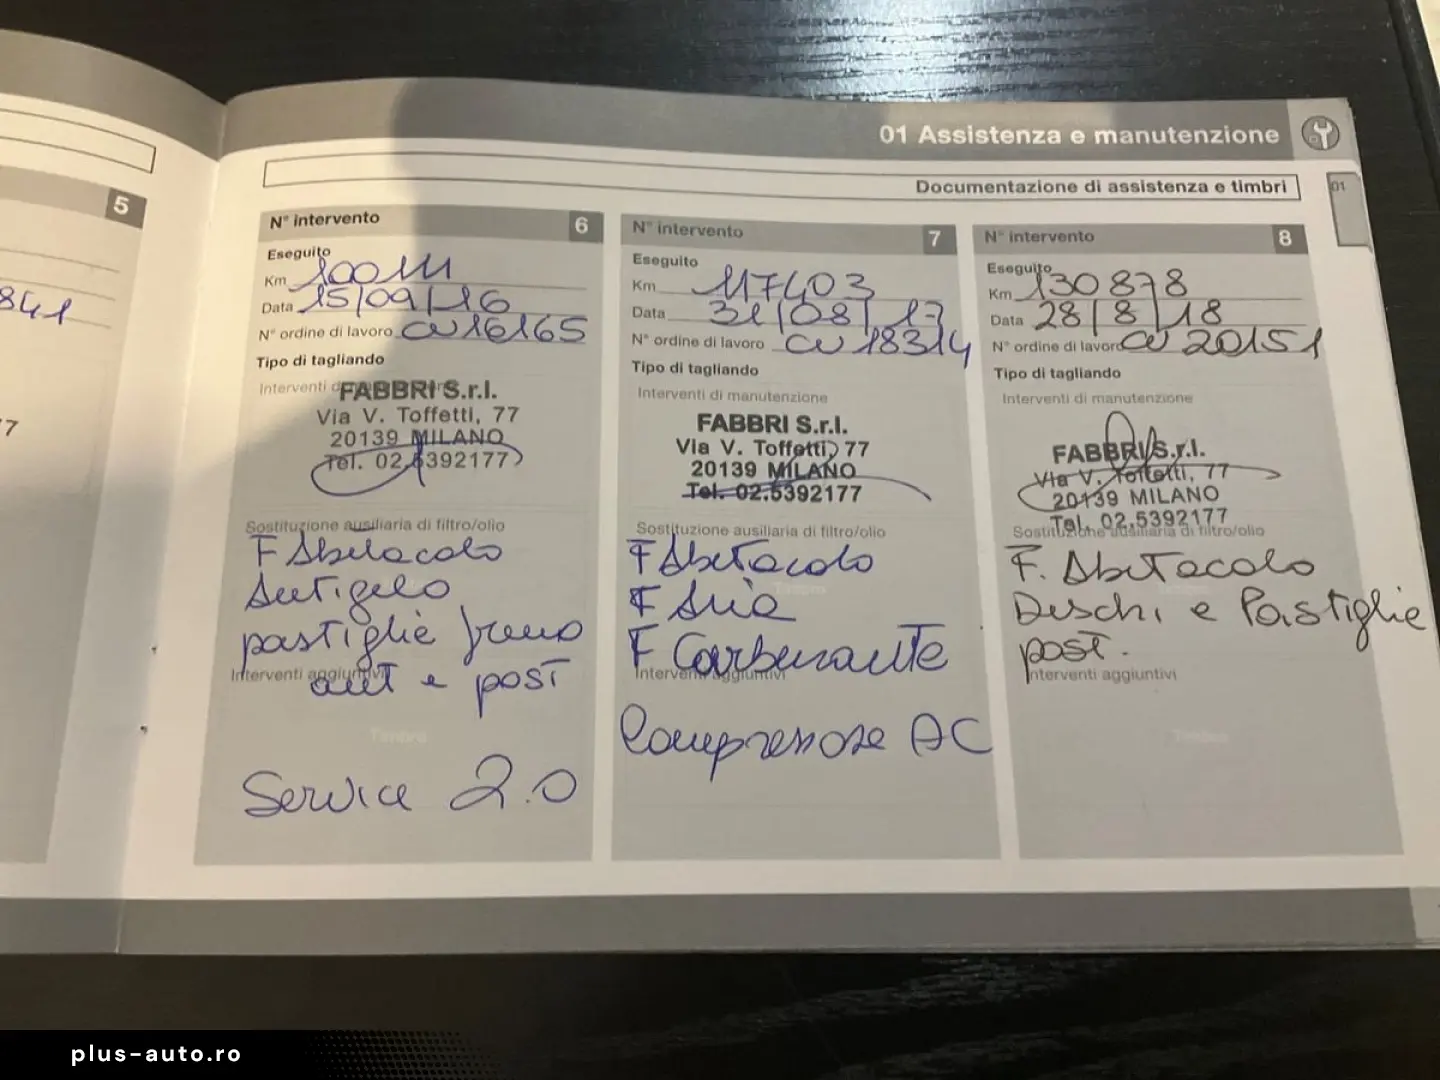 01 Assistenza e manutenzione
01
Documentazione di assistenza e timbri
5
841
7
N° intervento 6
Eseguito
Km 100111
Data 15/09/16
N° ordine di lavoro CW 16165
Tipo di tagliando
Interventi di
FABBRI S.r.l.
Via V. Toffetti, 77
20139 MILANO
Tel. 02.5392177
Sostituzione ausiliaria di filtro/olio
F Abitacolo
Antigelo
pastiglie freno
Interventi aggiuntivi
ant e post
Timbro
Service 2.0
N° intervento 7
Eseguito
Km 117403
Data 31/08/17
N° ordine di lavoro CW 18314
Tipo di tagliando
Interventi di manutenzione
FABBRI S.r.l.
Via V. Toffetti, 77
20139 MILANO
Tel. 02.5392177
Sostituzione ausiliaria di filtro/olio
F Abitacolo
Timbro
F Aria
F Carburante
Interventi aggiuntivi
Compressore AC
N° intervento 8
Eseguito
Km 130878
Data 28/8/18
N° ordine di lavoro CW 20151
Tipo di tagliando
Interventi di manutenzione
FABBRI S.r.l.
Via V. Toffetti, 77
20139 MILANO
Tel. 02.5392177
Sostituzione ausiliaria di filtro/olio
F. Abitacolo
Timbro
Dischi e Pastiglie
post.
Interventi aggiuntivi
Timbro
plus-auto.ro